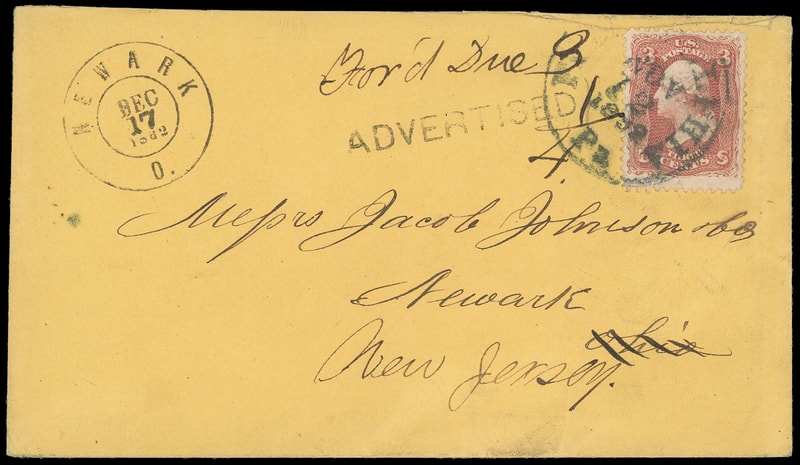 NEWARK
DEC
17
1862
O.
For'd Due 3
1
4
ADVERTISED
PHILADELPHIA
Pa
3 U.S. 3
POSTAGE
THREE
CENTS
U S
Messrs Jacob Johnson &Co
Newark
Ohio
New Jersey.